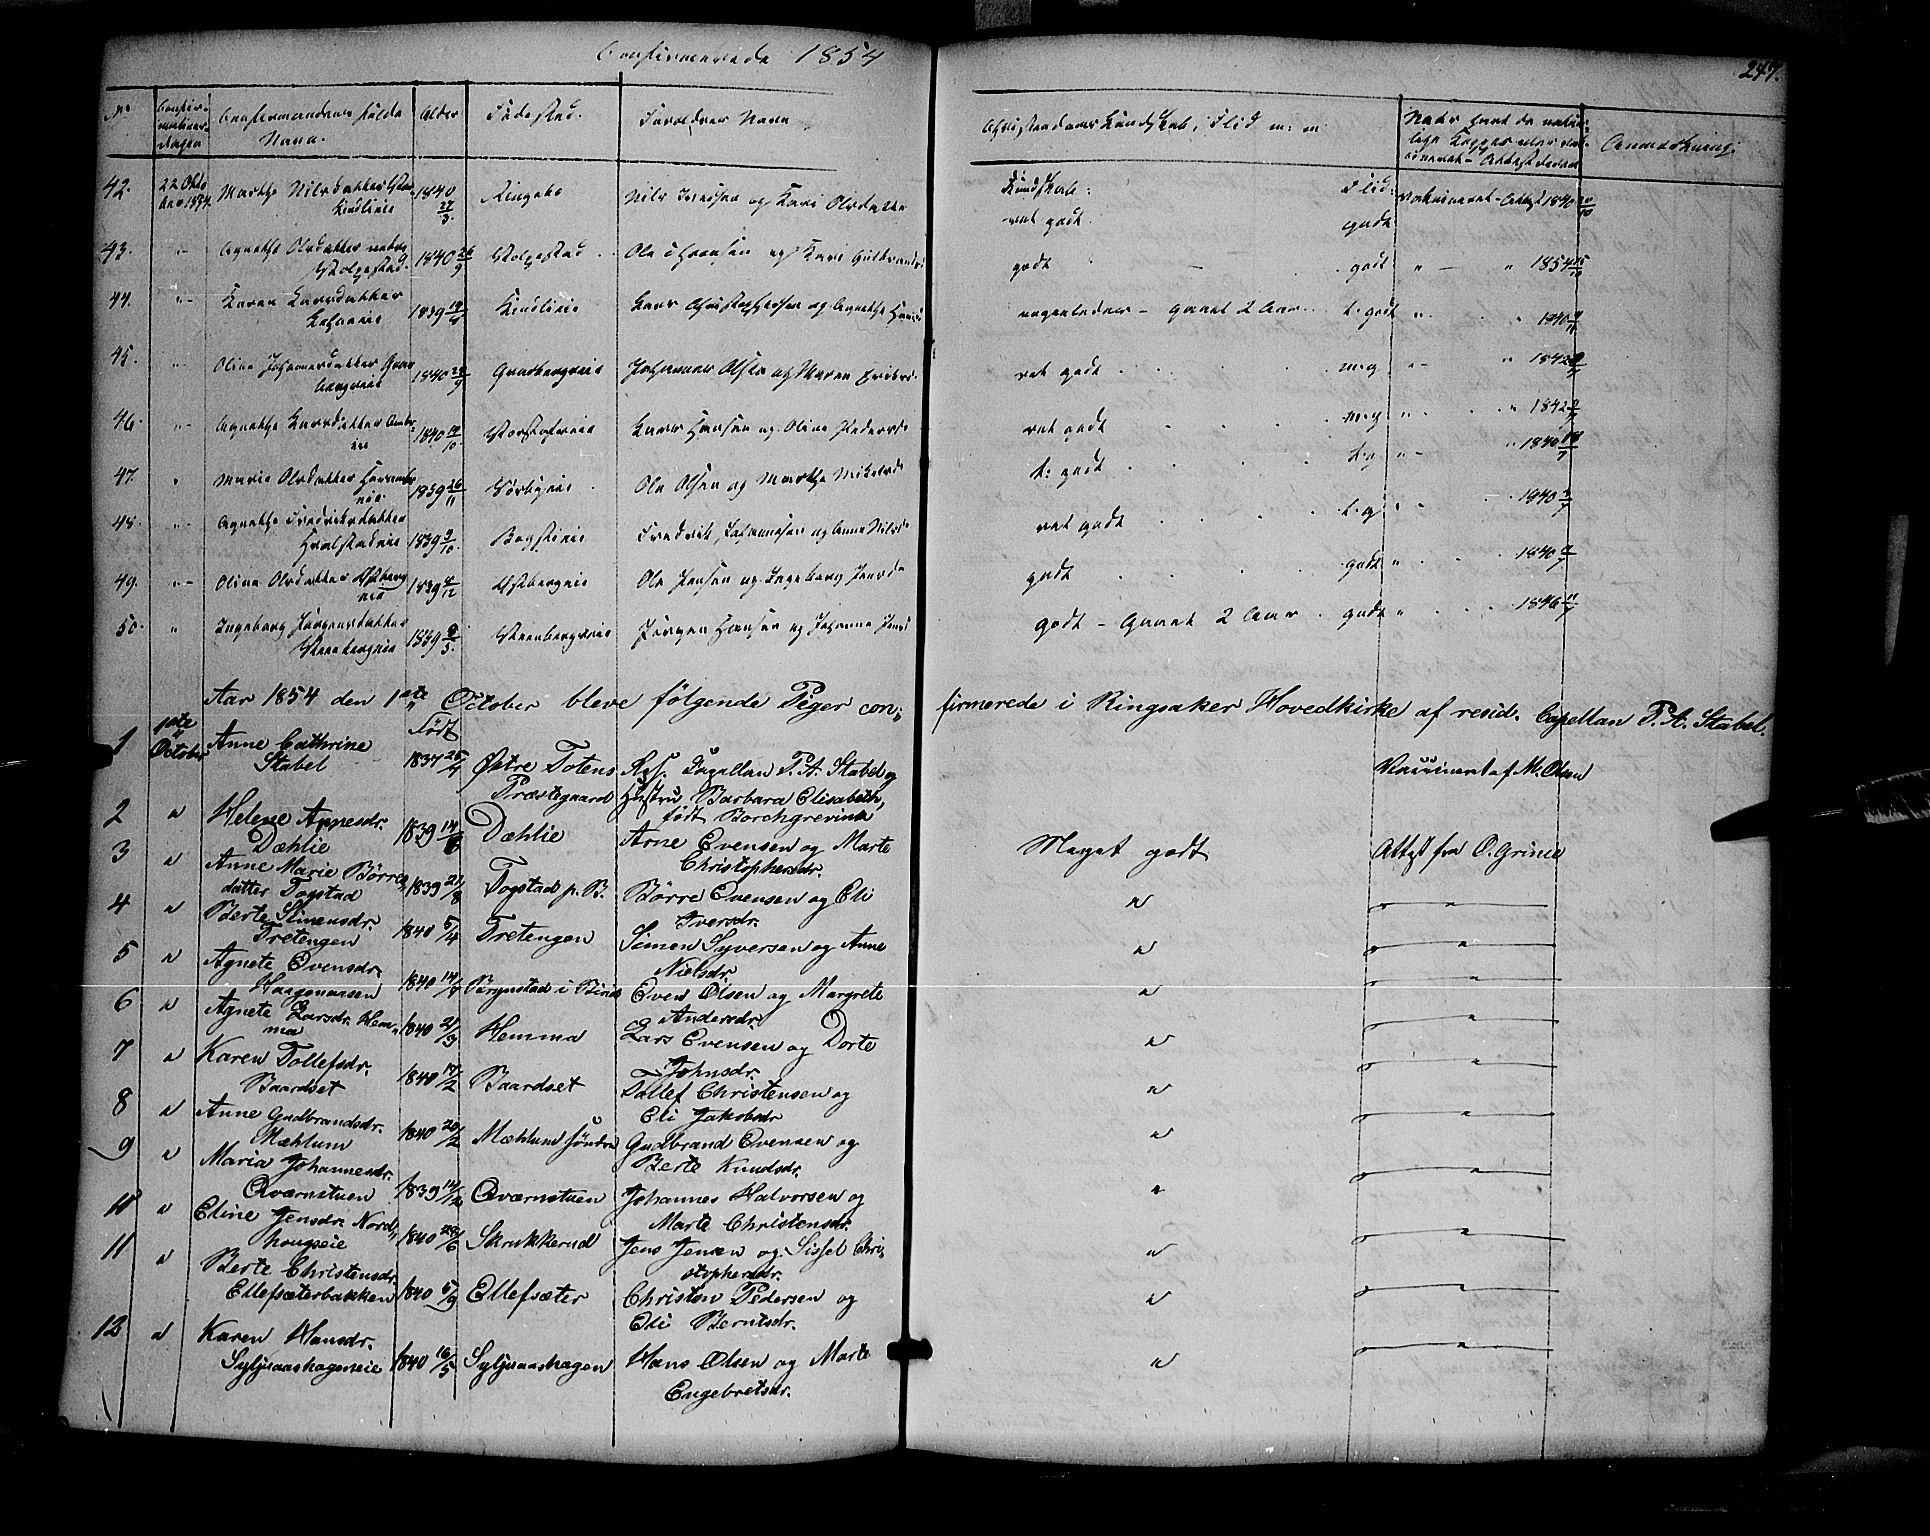 Confirmerede 1854
247.
No
Confirmationsdagen
Confirmandens fulde Navn.
Alder
Fødested.
Forældres Navn
Christendoms Kundskab, Flid m: m.
Naar havt de naturlige Kopper eller vaccineret - Attest derom
Anmærkning.
42. 22 Octobr 1854. Marthe Nilsdatter 1840 27/3 Ringebo Nils Iversen og Kari Olsdatter Kundskab: ret godt. Flid: godt vaksineret - Attest 1840 20/10
43. " Agnethe Olsdatter Stolpestad. 1840 26/9 Stolpestad Ole Hansen og Kari Gulbrandsd godt - godt " - " 1854 25/10
44. " Karen Larsdatter 1839 19/4 Lars Christophersen og Agnethe Hansd nogenledes - gaaet 2 Aar t. godt " " 1840
45. " Olina Johannesdatter 1840 29/9 Grusbergeie Johannes Olsen og Maren ret godt m.g " - " 1842
46. " Agnethe Larsdatter 1840 14/10 Lars Hansen og Oline Pedersd ret godt m.g " " 1842
47. " Marie Olsdatter 1839 26/11 Sørbyeie Ole Olsen og Marthe Mikelsd t: godt t.g " - " 1840 18/7
48. " Agnethe Fredriksdatter Hvalstadeie 1839 9/10 Bogstieie Fredrik Johannesen og Anne Nilsd ret godt t.g " " 1840
49. " Oline Olsdatter Østbergeie 1839 4/12 Østbergeie Ole Jensen og Ingeborg Jensd godt godt " 1840
50. " Ingeborg Jørgensdatter Steenbergeie 1839 8/5. Steenbergeie Jørgen Hansen og Johanne Jensd godt - gaaet 2 Aar godt " 1846 11/7
Aar 1854 den 1ste October bleve følgende Piger confirmerede i Ringsaker Hovedkirke af resid. Capellan P. A. Stabel.
Født
1 1ste October Anne Cathrine Stabel 1837 25/4 Østre Totens Præstegaard Res. Capellan P. A. Stabel og Hustru Barbara Elisabeth, født Borchgrevink Vaccineret af M. Olsen
2 " Helene Arnesdr. Dæhlie 1839 14/6 Dæhlie Arne Evensen og Marte Christophersdr. Meget godt Attest fra O. Grime
3 " Anne Marie Børresdatter Togstad 1839 21/8 Togstad p. B. Børre Evensen og Eli Iversdr. " "
4 " Berte Simensdr. Tretengen 1840 5/4 Tretengen Simen Syversen og Anne Nielsdr. " "
5 " Agnete Evensdr. Haagenaasen 1840 14/7 Brynstad i Birid Even Olsen og Margrete Andersdr. " "
6 " Agnete Larsdr. Hemma 1840 21/3 Hemma Lars Evensen og Dorte Johnsdr. " "
7 " Karen Tollefsdr. Baardset 1840 17/2 Baardset Tollef Christensen og Eli Jakobsdr " "
8 " Anne Gudbrandsdr. Mæhlum 1840 20/2 Mæhlum søndre Gudbrand Evensen og Berte Knudsdr. " "
9 " Maria Johannesdr. Qværnstuen 1839 14/12 Qværnstuen Johannes Halvorsen og Marte Christensdr. " "
10 " Eline Jensdr. Nordhougseie 1840 28/6 Skrukkerud Jens Jensen og Sissel Christophersdr. " "
11 " Berte Christensdr. Ellefsæterbakken 1840 5/9 Ellefsæter Christen Pedersen og Eli Berntsdr. " "
12 " Karen Hansdr. Syljuaashageneie 1840 16/5 Syljuaashagen Hans Olsen og Marte Engebretsdr. " "